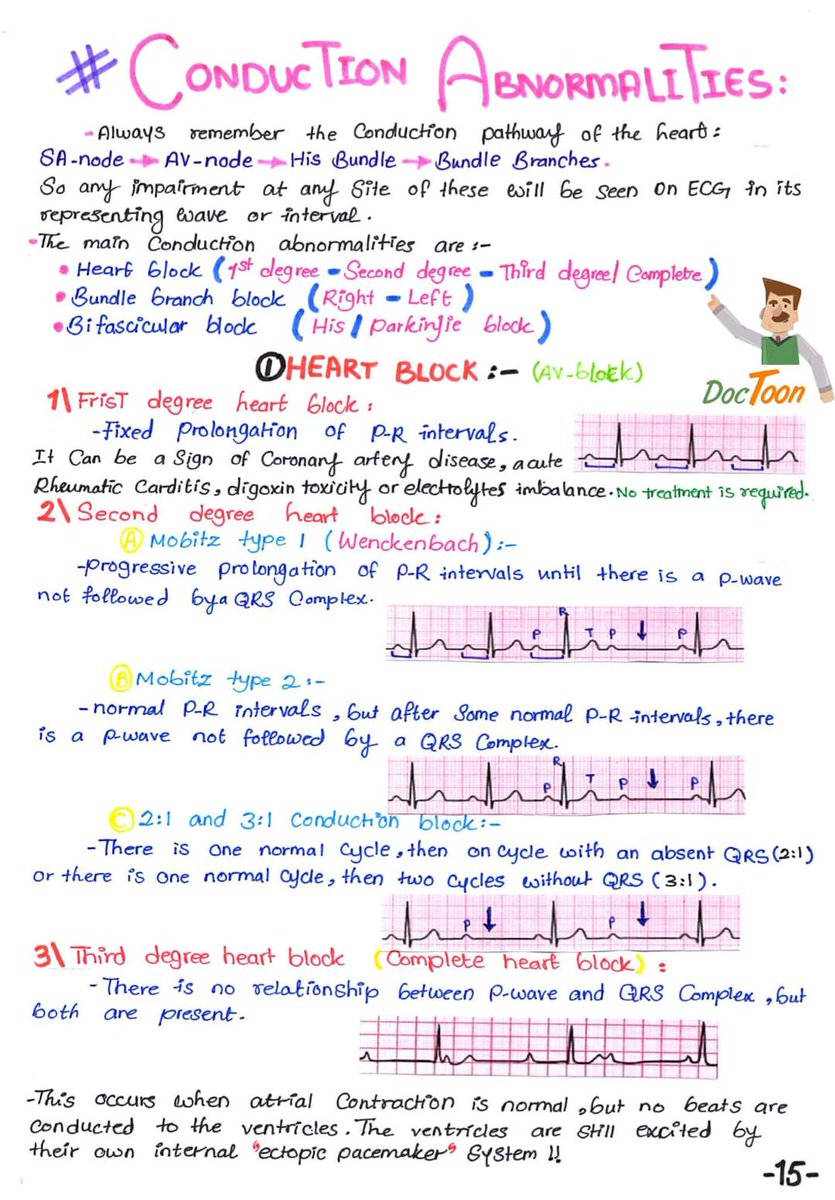 # CONDUCTION ABNORMALITIES:
- Always remember the Conduction pathway of the heart:
SA-node → AV-node → His Bundle → Bundle Branches.
So any impairment at any Site of these will be seen on ECG in its
representing wave or interval.
• The main Conduction abnormalities are :-
• Heart block (1st degree - Second degree - Third degree/ Complete)
• Bundle branch block (Right - Left)
• Bifascicular block (His/ Parkinjie block)
① HEART BLOCK :- (AV-block)
DocToon
1\ FrisT degree heart block :
- Fixed prolongation of P-R intervals.
It Can be a Sign of Coronary artery disease, acute
Rheumatic Carditis, digoxin toxicity or electrolytes imbalance. No treatment is required.
2\ Second degree heart block :
A Mobitz type 1 (Wenckenbach) :-
- progressive prolongation of P-R intervals until there is a p-wave
not followed by a QRS Complex.
P R T P P
B Mobitz type 2 :-
- normal P-R intervals, but after Some normal P-R intervals, there
is a p-wave not followed by a QRS Complex.
P R T P P
C 2:1 and 3:1 Conduction block :-
- There is one normal Cycle, then on cycle with an absent QRS (2:1)
or there is one normal cycle, then two cycles without QRS (3:1).
P P
3\ Third degree heart block (Complete heart block) :
- There is no relationship between p-wave and QRS Complex, but
both are present.
- This occurs when atrial Contraction is normal, but no beats are
conducted to the ventricles. The ventricles are still excited by
their own internal "ectopic pacemaker" System !!
-15-